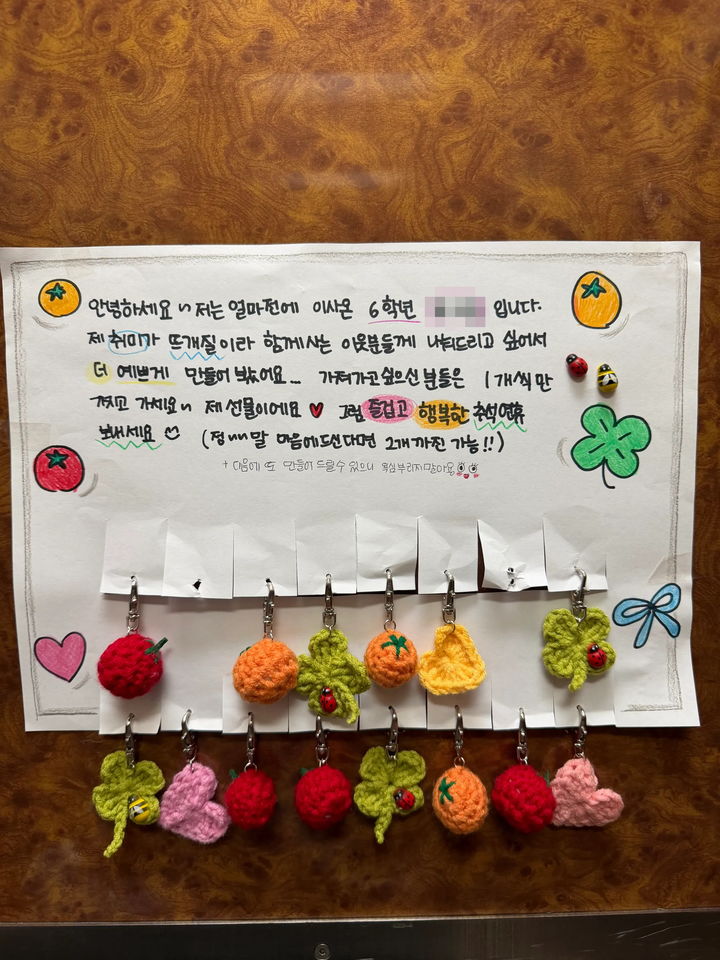 안녕하세요~ 저는 얼마전에 이사온 6학년 입니다.
제 취미가 뜨개질이라 함께사는 이웃분들께 나눠드리고 싶어서
더 예쁘게 만들어 봤어요... 가져가고싶으신 분들은 1개씩만
찢고 가세요~ 제 선물이에요 ♥ 그럼 즐겁고 행복한 추석연휴
보내세요 ☺ (정~~말 마음에드신다면 2개까진 가능!!)
+ 다음에 또 만들어 드릴수 있으니 욕심부리지말아용